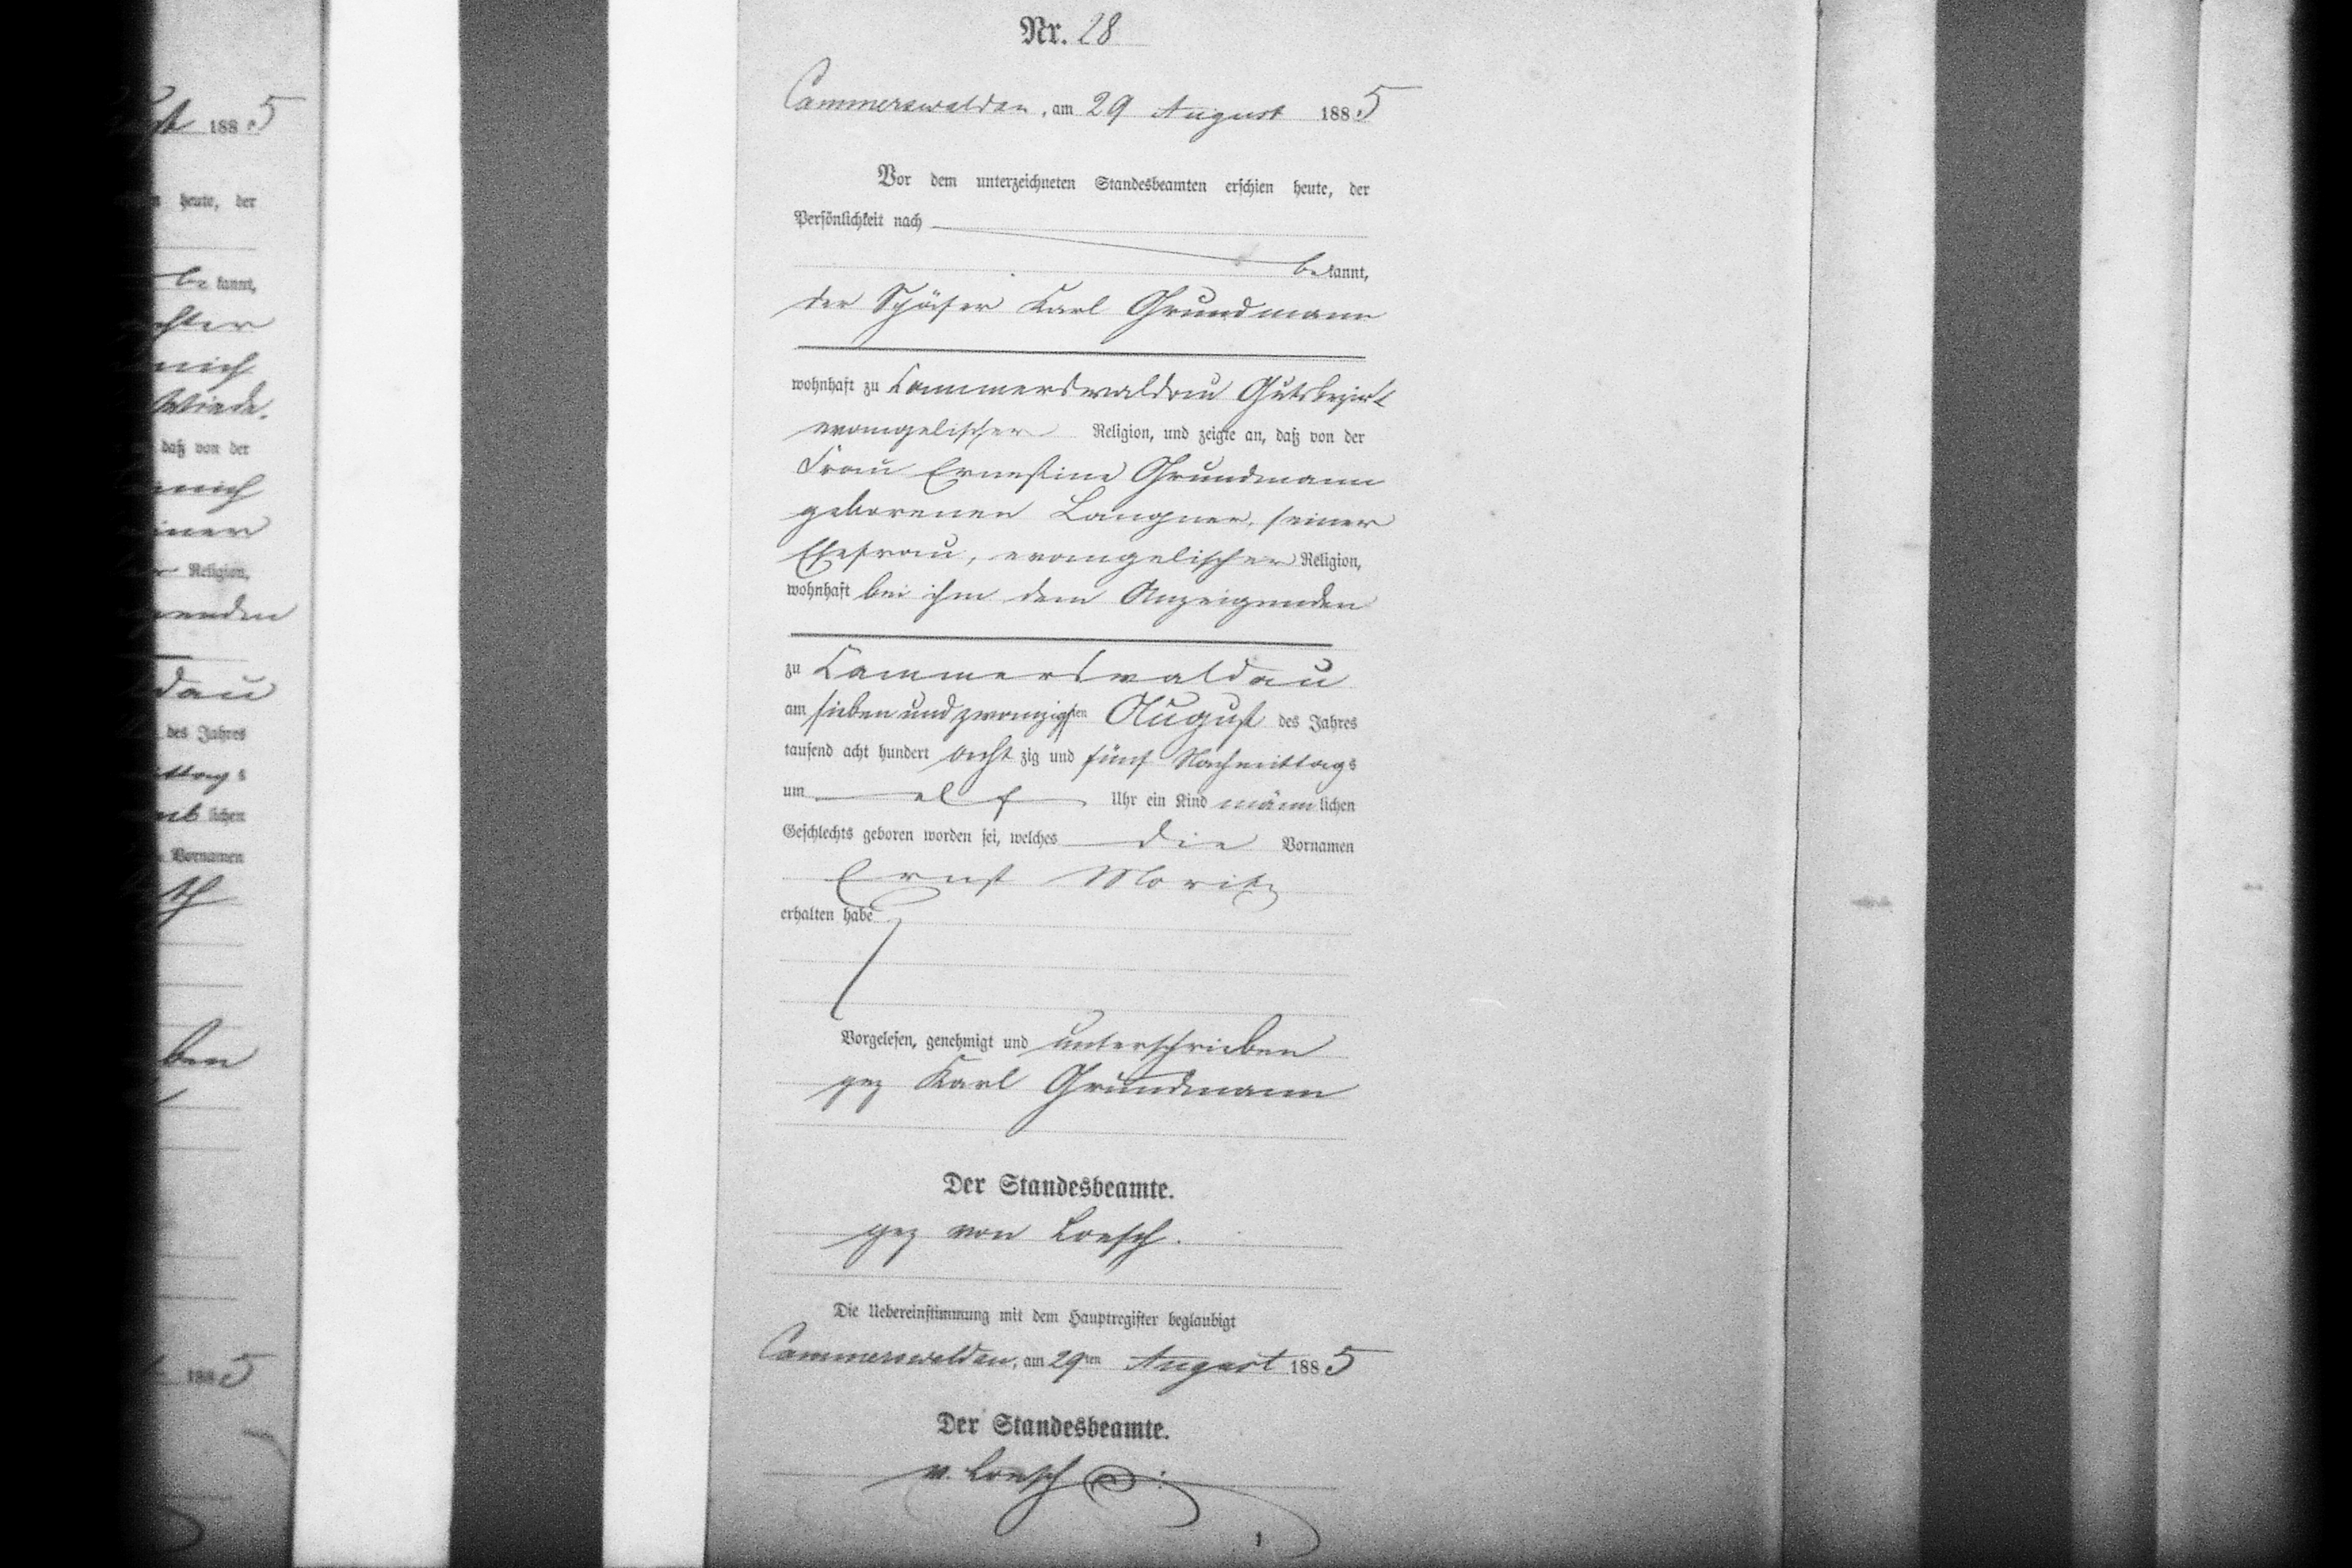 Nr. 28
Cammerswaldau, am 29 August 1885
Vor dem unterzeichneten Standesbeamten erschien heute, der
Persönlichkeit nach
bekannt,
der Schäfer Karl Grundmann
wohnhaft zu Cammerswaldau Gutsbezirk
evangelischer Religion, und zeigte an, daß von der
Frau Ernestine Grundmann
geborenen Langner, seiner
Ehefrau, evangelischer Religion,
wohnhaft bei ihm dem Anzeigenden
zu Cammerswaldau
am sieben und zwanzigsten August des Jahres
tausend acht hundert acht zig und fünf Nachmittags
um elf Uhr ein Kind männlichen
Geschlechts geboren worden sei, welches die Vornamen
Ernst Moritz
erhalten habe
Vorgelesen, genehmigt und unterschrieben
gez Karl Grundmann
Der Standesbeamte.
gez von Loesch.
Die Uebereinstimmung mit dem Hauptregister beglaubigt
Cammerswaldau, am 29ten August 1885
Der Standesbeamte.
v. Loesch
1885
heute, der
be kannt,
daß von der
Religion,
dau
des Jahres
lichen
Vornamen
ben
1885